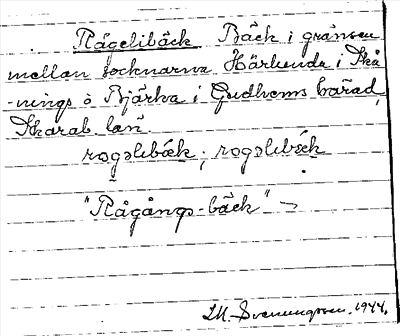 Rågelibäck Bäck i gränsen
mellan socknarna Härlunda i Skå
-nings o Bjärka i Gudhems härad,
Skarab. län
rogslibäk; rogslibäk
"Rågångs-bäck"
Svenungsson. 1944.